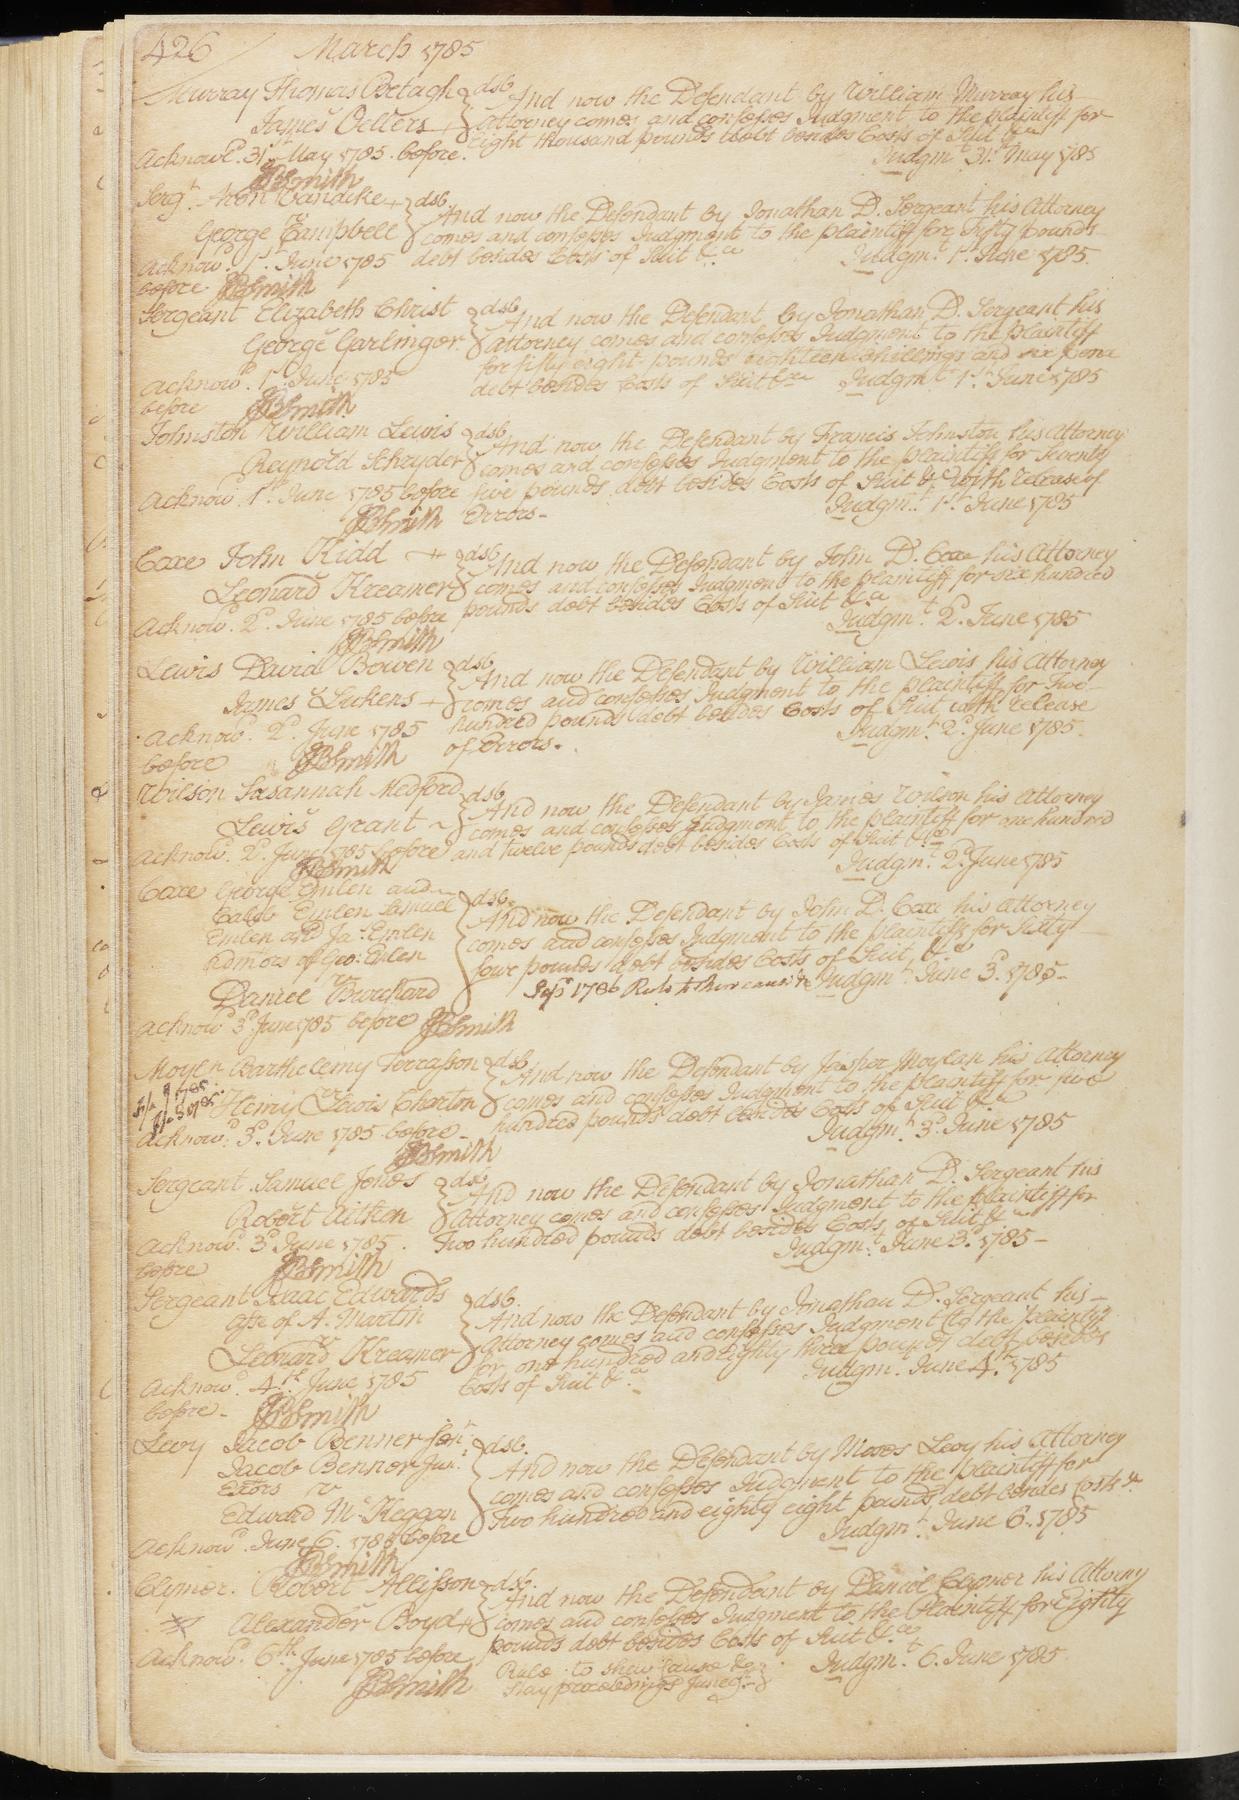 426 March 1785
Murray Thomas Betagh } dsb And now the Defendant by William Murray his
James Oellers + attorney comes and confesses Judgment to the plaintiff for
eight thousand pounds debt besides Costs of Suit &ca
Acknowd. 31st May 1785. before. Judgmt. 31st May 1785
JBSmith
Sergt. Aron Vandike + } dsb.
v And now the Defendant by Jonathan D. Sergeant his Attorney
George Campbell comes and confesses Judgment to the plaintiff for fifty pounds
Acknow. 1st. June 1785 debt besides Costs of Suit &ca Judgmt. 1st. June 1785.
before JBSmith
Sergeant Elizabeth Christ } dsb.
v And now the Defendant by Jonathan D. Sergeant his
George Garlinger. attorney comes and confesses Judgment to the plaintiff
for fifty eight pounds eighteen shillings and six pence
Acknowd. 1st. June 1785 debt besides Costs of Suit &ca Judgmt. 1st. June 1785
before JBSmith
Johnston William Lewis } dsb.
v And now the Defendant by Francis Johnston his Attorney
Reynold Schryder comes and confesses Judgment to the plaintiff for seventy
Acknow. 1st June 1785 before five pounds debt besides Costs of Suit &c. With release of
JBSmith Errors- Judgmt. 1st. June 1785
Coxe John Kidd + } dsb.
v And now the Defendant by John D. Coxe his Attorney
Leonard Kreamer comes and confesses Judgment to the plaintiff for six hundred
pounds debt besides Costs of Suit &ca
Acknow. 2d. June 1785 before Judgmt. 2d. June 1785
JBSmith
Lewis David Bowen } dsb.
v And now the Defendant by William Lewis his Attorney
James Lukens + comes and confesses Judgment to the plaintiff for Two
hundred pounds debt besides Costs of Suit with release
Acknowd. 2d. June 1785 of Errors. Judgmt. 2d. June 1785.
before JBSmith
Wilson Susannah Medford } dsb.
v And now the Defendant by James Wilson his Attorney
Lewis Grant ~ comes and confesses Judgment to the plaintiff for one hundred
Acknowd. 2d. June 1785 before and twelve pounds debt besides Costs of Suit &ca
JBSmith Judgmt. 2d. June 1785
Coxe George Emlen and } dsb.
Caleb Emlen Samuel And now the Defendant by John D. Coxe his Attorney
Emlen and Jas. Emlen comes and confesses Judgment to the plaintiff for Sixty
Admors of Geo: Emlen four pounds debt besides Costs of Suit, &ca
v Sepr. 1786 Rule to shew cause &c Judgmt. June 3d. 1785-
Daniel Bouchard
Acknowd 3d June 1785 before JBSmith
Moylan Barthelemy Terrasson } dsb
v And now the Defendant by Jasper Moylan his Attorney
Henry Lewis Charton comes and confesses Judgment to the plaintiff for five
hundred pounds debt besides Costs of Suit &ca
Acknowd. 3d. June 1785. before - Judgmt. 3d. June 1785
JBSmith
Sergeant Samuel Jones } dsb.
v And now the Defendant by Jonathan D. Sergeant his
Robert Aitken attorney comes and confesses Judgment to the plaintiff for
Two hundred pounds debt besides Costs of Suit &ca
Acknowd. 3d June 1785. Judgmt. June 3d. 1785-
before JBSmith
Sergeant Isaac Edwards } dsb.
assee of A. Martin And now the Defendant by Jonathan D. Sergeant his -
v attorney comes and confesses Judgment to the plaintiff
Leonard Kreamer for one hundred and Eighty three pounds debt besides
Costs of Suit &ca Judgmt. June 4th. 1785
Acknowd. 4th. June 1785
before - JBSmith
Levy Jacob Benner Senr. } dsb.
Jacob Benner Junr. And now the Defendant by Moses Levy his Attorney
Exors v comes and confesses Judgment to the plaintiff for
Edward McKeggan Two hundred and eighty eight pounds debt besides Costs &c
Acknowd. June 6. 1785 before Judgmt. June 6. 1785
JBSmith
Clymer. Robert Allisson } dsb.
v And now the Defendant by Daniel Clymer his Attorny
Alexander Boyd + comes and confesses Judgment to the Plaintiff for Eighty
pounds debt besides Costs of Suit &ca
Acknowd. 6th. June 1785 before Judgmt. 6. June 1785
JBSmith Rule to shew Cause &c
Stay proceedings June